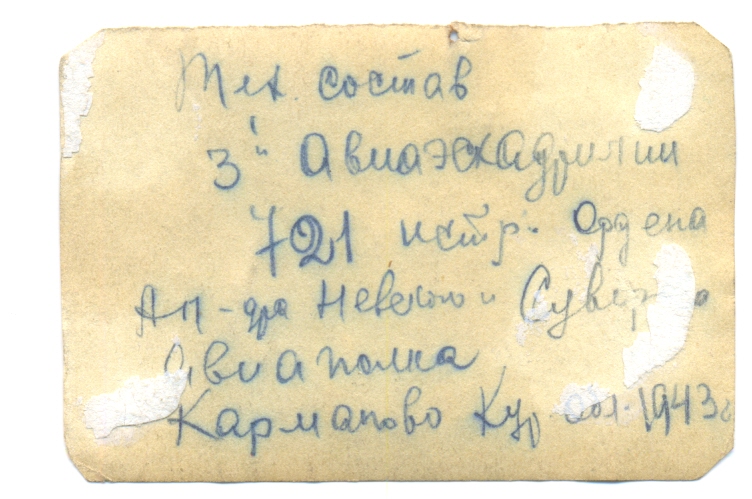 Тех. состав
3й Авиаэскадрилии
721 истр. Ордена
Ал-дра Невского и
Авиаполка
Карманово Кур обл. 1943г